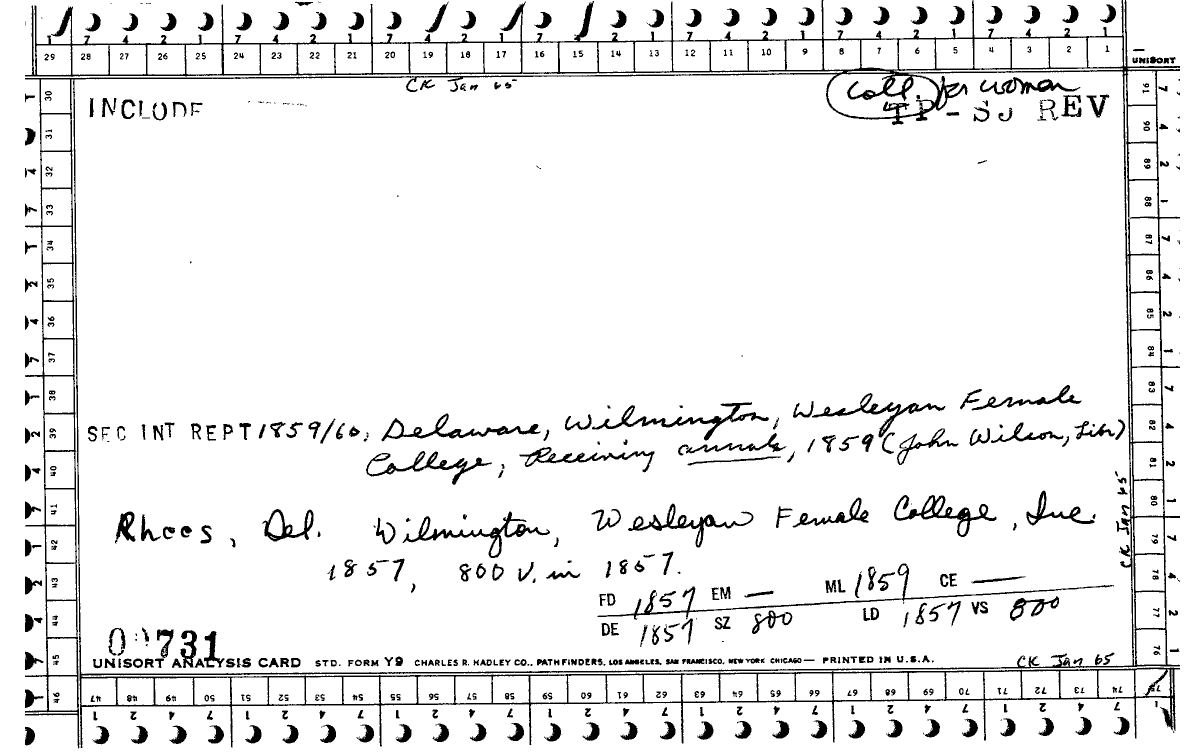 1 7 4 2 1 7 4 2 1 7 4 2 1 7 4 2 1 7 4 2 1 7 4 2 1 7 4 2 1
29 28 27 26 25 24 23 22 21 20 19 18 17 16 15 14 13 12 11 10 9 8 7 6 5 4 3 2 1
UNISORT
CK Jan 65
Coll for women
INCLUDE
TP - SJ REV
SEC INT REPT 1859/60, Delaware, Wilmington, Wesleyan Female
College, Receiving annals, 1859 (John Wilson, Libr)
Rhees, Del. Wilmington, Wesleyan Female College, Inc.
1857, 800 V. in 1857.
FD 1857 EM — ML 1859 CE —
DE 1857 SZ 800 LD 1857 VS 800
731
UNISORT ANALYSIS CARD STD. FORM Y9 CHARLES R. HADLEY CO., PATHFINDERS, LOS ANGELES, SAN FRANCISCO, NEW YORK CHICAGO — PRINTED IN U.S.A.
CK Jan 65
CK Jan 65
30 31 32 33 34 35 36 37 38 39 40 41 42 43 44 45 46
91 90 89 88 87 86 85 84 83 82 81 80 79 78 77 76
47 48 49 50 51 52 53 54 55 56 57 58 59 60 61 62 63 64 65 66 67 68 69 70 71 72 73 74 75
1 2 4 7 1 2 4 7 1 2 4 7 1 2 4 7 1 2 4 7 1 2 4 7 1 2 4 7 1